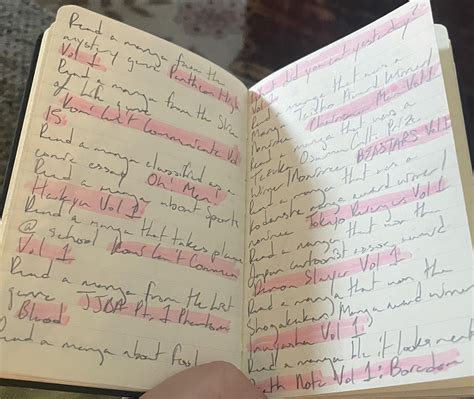 Read a manga from the
mystery genre Pantheon High
Vol 1
Read a manga from the Slice
of Life genre
Komi Can't Communicate Vol
15
Read a manga classified as a
comic essay Oh! Men!
Read a manga about Sports
Haikyu Vol 1
Read a manga that takes place
@ school Komi Can't Commun
Vol 1
Read a manga from the
genre JJBA Pt. 1 Phantom
Blood
Read a manga about food
What did you eat yesterday?
Vol 1
manga that was a
Manga Taisho Award
Chainsaw Man Vol 1
manga that was a
Tezuka Osamu Cult. Prize
BEASTARS Vol 1
Read a manga that was a
Kodansha manga award winner/
nominee Tokyo Revengers Vol 1
Read a manga that won the
Japan cartoonist assoc award
Demon Slayer Vol 1
Read a manga that won the
Shogakukan Manga award
Inuyasha Vol 1
Read a manga bc it looks neat
Death Note Vol 1: Boredom